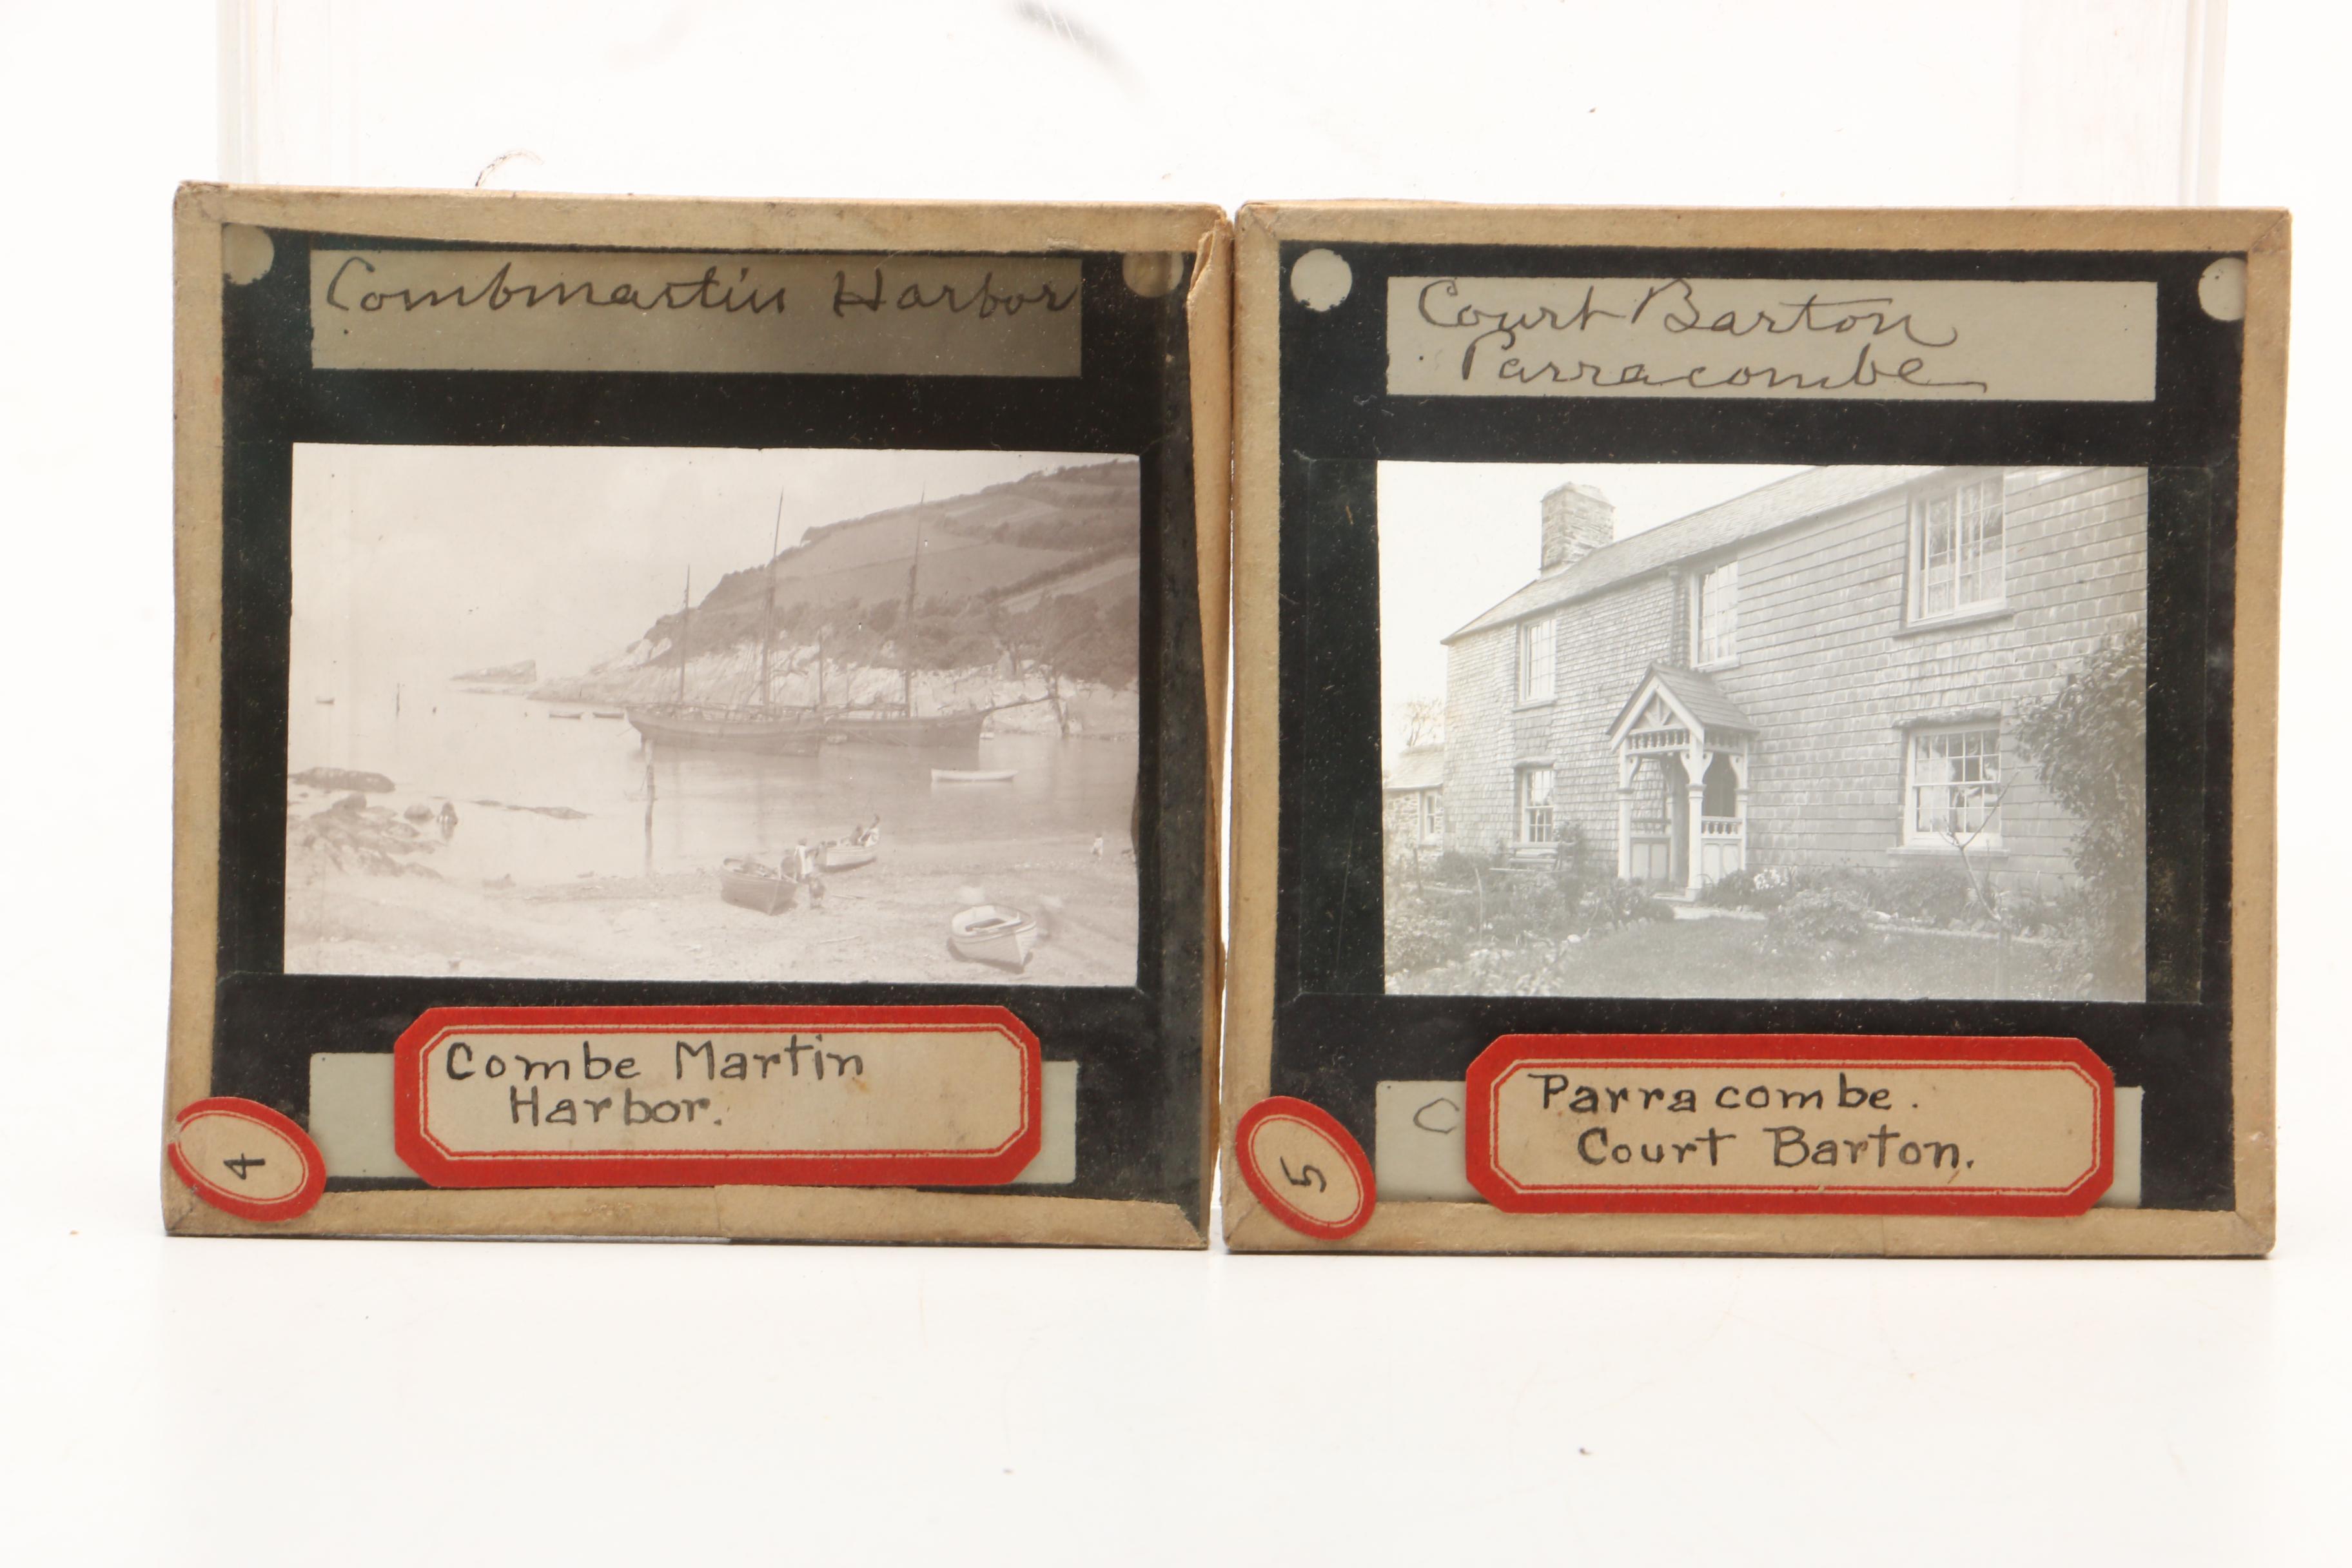 Combmartin Harbor
Combe Martin
Harbor.
4
Court Barton
Parracombe
C
Parracombe.
Court Barton.
5